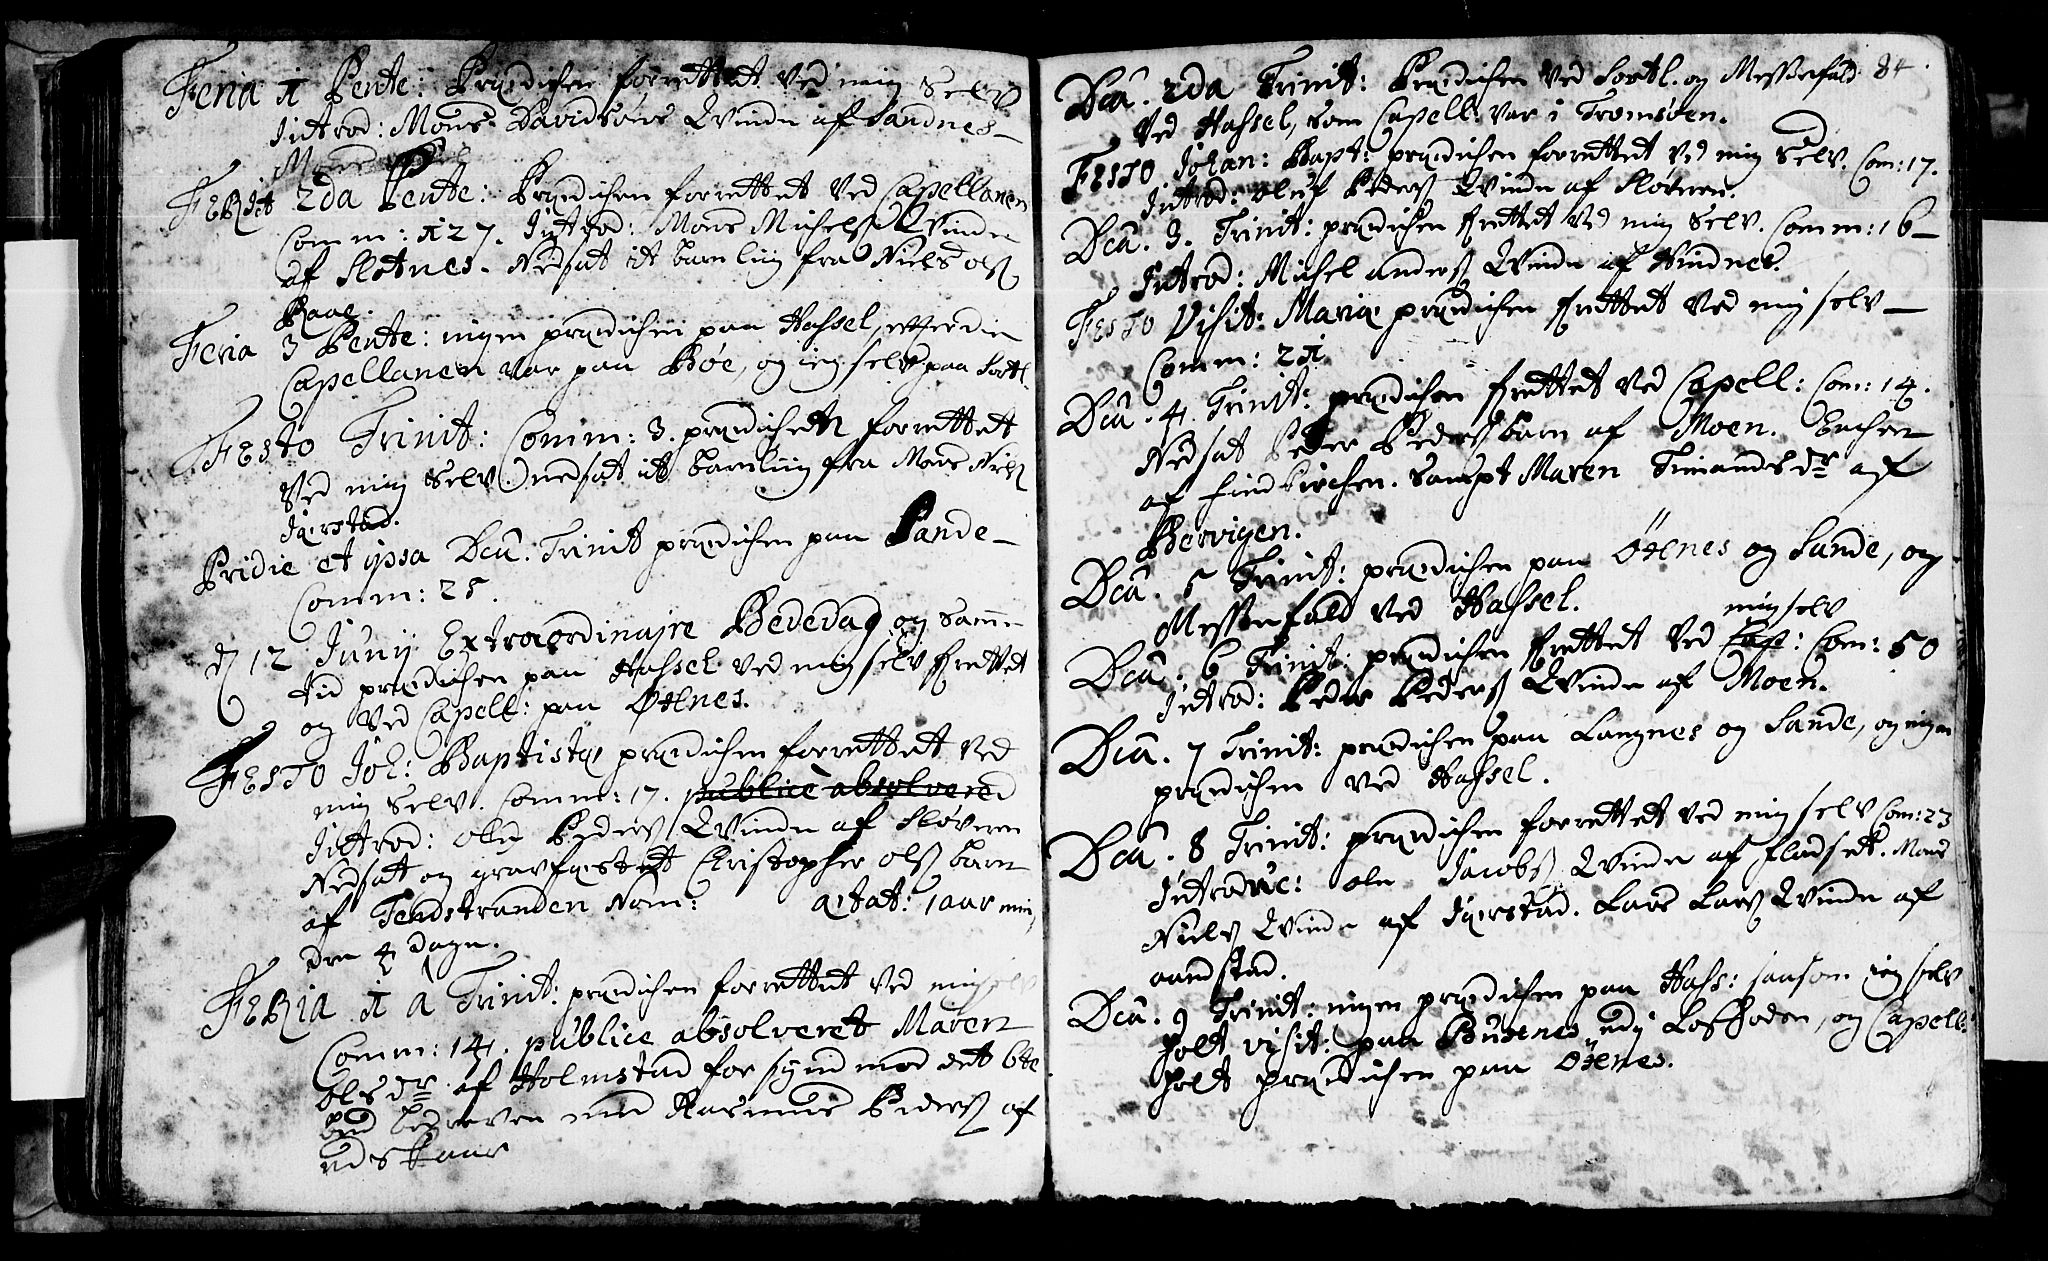 Feria 1 Pente: Prædichen forrettet ved mig Selv
Introd: Mons Davidsøns Qvinde af Sandnes
FERIA 2da Pente: Prædichen forrettet ved Capellanen
Comm: 127. Introd: Mons Michels Qvinde
af Slotnes. Nedsat it barnliig fra Niels Ols
Raae.
Feria 3 Pente: ingen prædichen paa Hassel, efterdi
Capellanen var paa Bøe, og ieg selv paa Sortl.
FESTO Trinit: Comm: 3. prædichen forrettet
ved mig Selv. nedsat it barnliig fra Mons Niels
Jærstad.
Pridie et ipsa Dca. Trinit prædichen paa Sande
Comm: 25.
d 12 Junij Extraordinajre Bededag og Samme
tid prædichen paa Hassel ved mig selv frettet
og ved Capell: paa Øxnes.
FESTO Joh: Baptistæ prædichen forrettet ved
mig Selv. Comm: 17. publice absolvered
Introd: Ole Peders Qvinde af Fløveren
Nedsat og gravfæstet Christopher Ols barn
af Tendstranden Nom: ætat: 1 aar min,
dre 4 dage.
FERIA 1 à Trinit: prædichen forrettet ved mig selv
Comm: 14. publice absolveret Maren
Olsdr af Holmstad for synd mod det 6te
bud bedreven med Rasmus Peders af
udskaar
84.
Dca. 2da Trinit: Prædichen ved Sortl. og Messefald
ved Hassel, som Capell: var i Tromsøen.
FESTO Johan: Bapt: prædichen forrettet ved mig Selv. Com: 17.
Introd: Oluf Peders Qvinde af Fløveren.
Dca. 3. Trinit: prædichen frettet ved mig Selv. Comm: 16
Introd: Michel Anders Qvinde af Hindnes.
FESTO Visit: Mariæ prædichen frettet ved mig selv
Comm: 21
Dca. 4 Trinit: prædichen frettet ved Capell: Com: 14.
Nedsat Peder Peders barn af Moen. Enchen
af Findkirchen. Sampt Maren Simandsdr af
Børvigen.
Dca. 5 Trinit: prædichen paa Øxnes og Sande, og
Messefald ved Hassel.
mig selv
Dca. 6 Trinit: prædichen frettet ved Cap: Com: 50
Introd: Peder Peders Qvinde af Moen.
Dca. 7 Trinit: prædichen paa Langnes og Sande, og ingen
prædichen ved Hassel.
Dca. 8 Trinit: prædichen forrettet ved mig selv Com: 23
Introduc: Ole Jacobs Qvinde af Fladset. Mons
Niels Qvinde af Jærstad. Lars Lars Qvinde af
aandstad.
Dca. 9 Trinit: ingen prædichen paa Hass: saasom ieg selv
holt visit: paa Busenes udj Lofhoden, og Capell:
holt prædichen paa Øxnes.